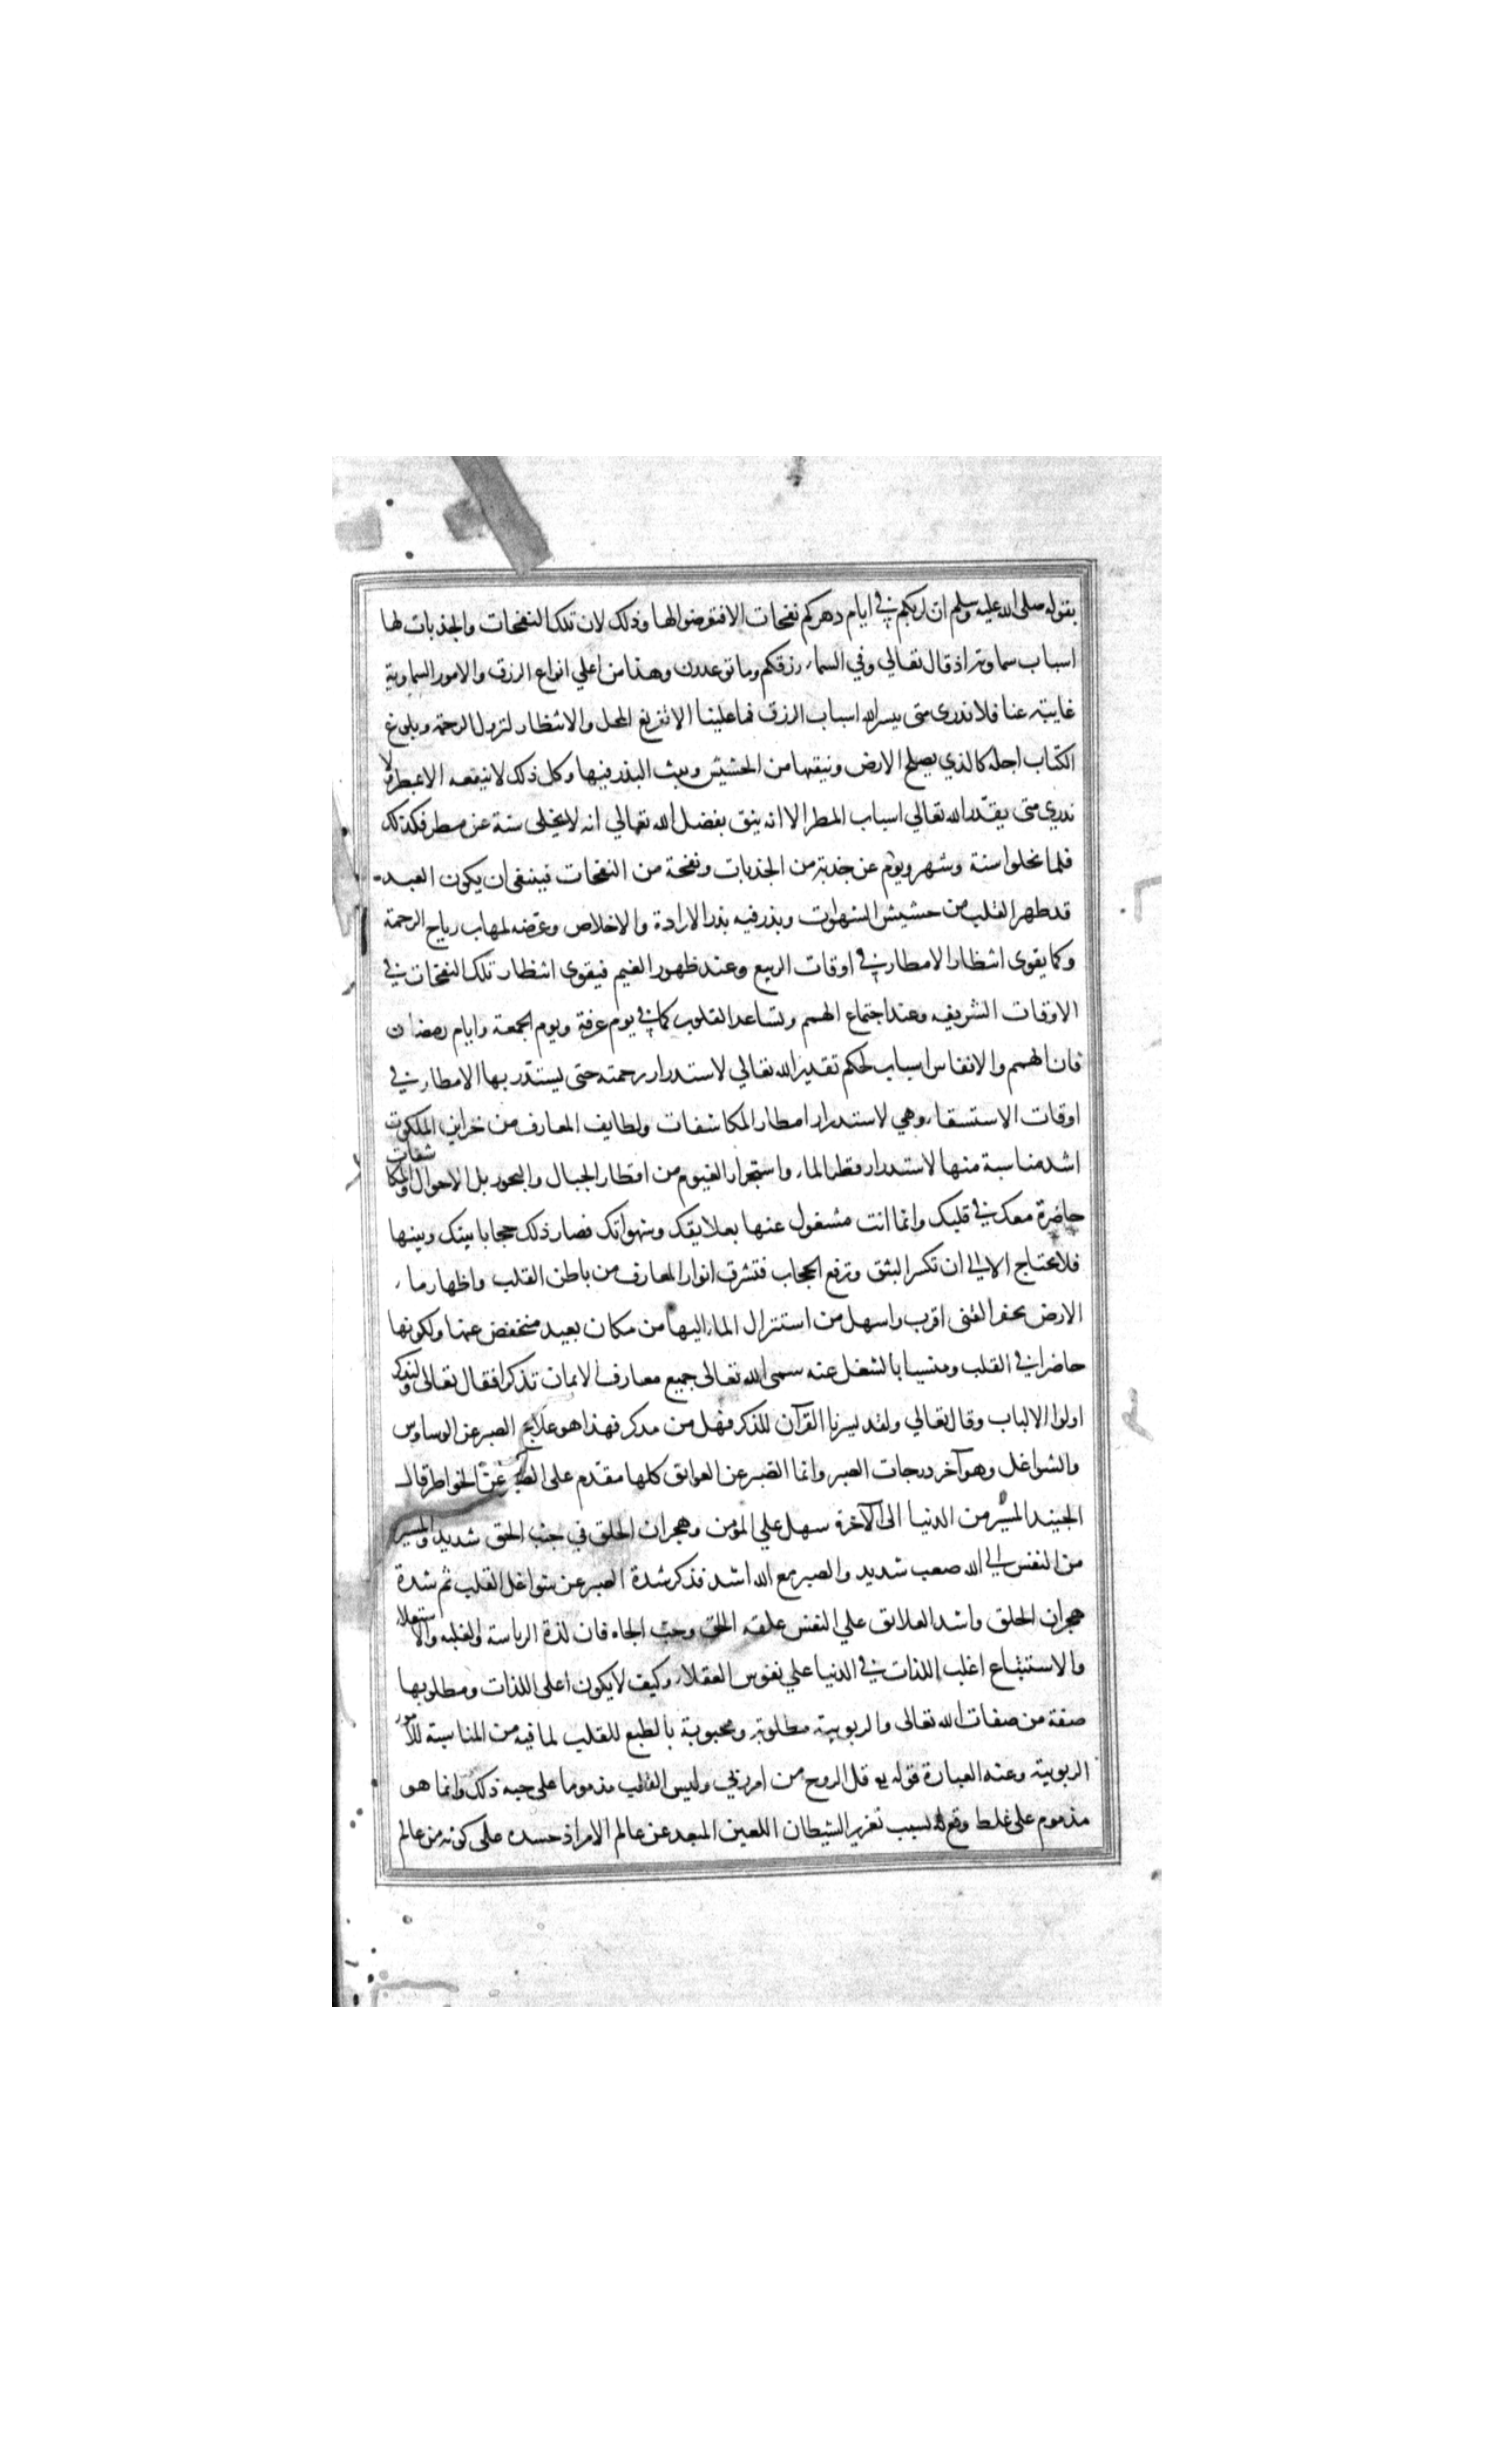 بقوله صلى الله عليه وسلم ان لربكم في ايام دهركم نفحات الا فتعرضوا لها وذلك لان تلك النفحات والجذبات لها
اسباب سماوية اذ قال تعالي وفي السماء رزقكم وما توعدون وهذا من اعلي انواع الرزق والامور السماوية
غايبة عنا فلا ندرى متى ييسر الله اسباب الرزق فما علينا الا تفريغ المحل والانتظار لنزول الرحمة وبلوغ
الكتاب اجله كالذي يصلح الارض وينقيها من الحشيش ويبث البذر فيها وكل ذلك لا ينفعه الا بمطر ولا
ندري متى يقدر الله تعالي اسباب المطر الا انه يثق بفضل الله تعالي انه لا يخلى سنة عن مطر فكذلك
قلما تخلوا سنة وشهر ويوم عن جذبة من الجذبات ونفحة من النفحات فينبغى ان يكون العبد
قد طهر القلب من حشيش الشهوات وبذر فيه بذر الارادة والاخلاص وعرضه لمهاب رياح الرحمة
وكما يقوى انتظار الامطار في اوقات الربيع وعند ظهور الغيم فيقوى انتظار تلك النفحات في
الاوقات الشريفه وعند اجتماع الهمم وتساعد القلوب كما في يوم عرفة ويوم الجمعة وايام رمضان
فان الهمم والانفاس اسباب لحكم تقدير الله تعالي لاستدرار رحمته حتى يستدر بها الامطار في
اوقات الاستسقاء وهي لاستدرار امطار المكاشفات ولطايف المعارف من خزاين الملكوت
اشد مناسبة منها لاستدرار قطر الماء واستجرار الغيوم من اقطار الجبال والبحور بل الاحوال والمكاشفات
حاضرة معك في قلبك وانما انت مشغول عنها بعلايقك وشهواتك فصار ذلك حجابا بينك وبينها
فلا يحتاج الا الي ان تكسر البثق وترفع الحجاب فتشرق انوار المعارف من باطن القلب واظهار ماء
الارض بحفر القنى اقرب واسهل من استنزال الماء اليها من مكان بعيد منخفض عنها ولكونها
حاضرا في القلب ومنسيا بالشغل عنه سمى الله تعالى جميع معارف الايمان تذكرا فقال تعالى وليتذكر
اولوا الالباب وقال تعالي ولقد يسرنا القرآن للذكر فهل من مدكر فهذا هو علاج الصبر عن الوساوس
والشواغل وهو آخر درجات الصبر وانما الصبر عن العوايق كلها مقدم على الصبر عن الخواطر قال
الجنيد المسير من الدنيا الى الآخرة سهل علي المؤمن وهجران الخلق في جنب الحق شديد والمسير
من النفس الي الله صعب شديد والصبر مع الله اشد فذكر شدة الصبر عن شواغل القلب ثم شدة
هجران الخلق واشد العلايق علي النفس علقه الخلق وحب الجاه فان لذة الرياسة والغلبه والاستعلاء
والاستتباع اغلب اللذات في الدنيا علي نفوس العقلاء وكيف لا يكون اعلى اللذات ومطلوبها
صفة من صفات الله تعالى والربوبية مطلوبة ومحبوبة بالطبع للقلب لما فيه من المناسبة للأمور
الربوبية وعنه العبارة قوله قل الروح من امر ربي وليس القلب مذموما على حبه ذلك وانما هو
مذموم على غلط وقع له بسبب تغرير الشيطان اللعين المبعد عن عالم الامر اذ حسده على كونه من عالم